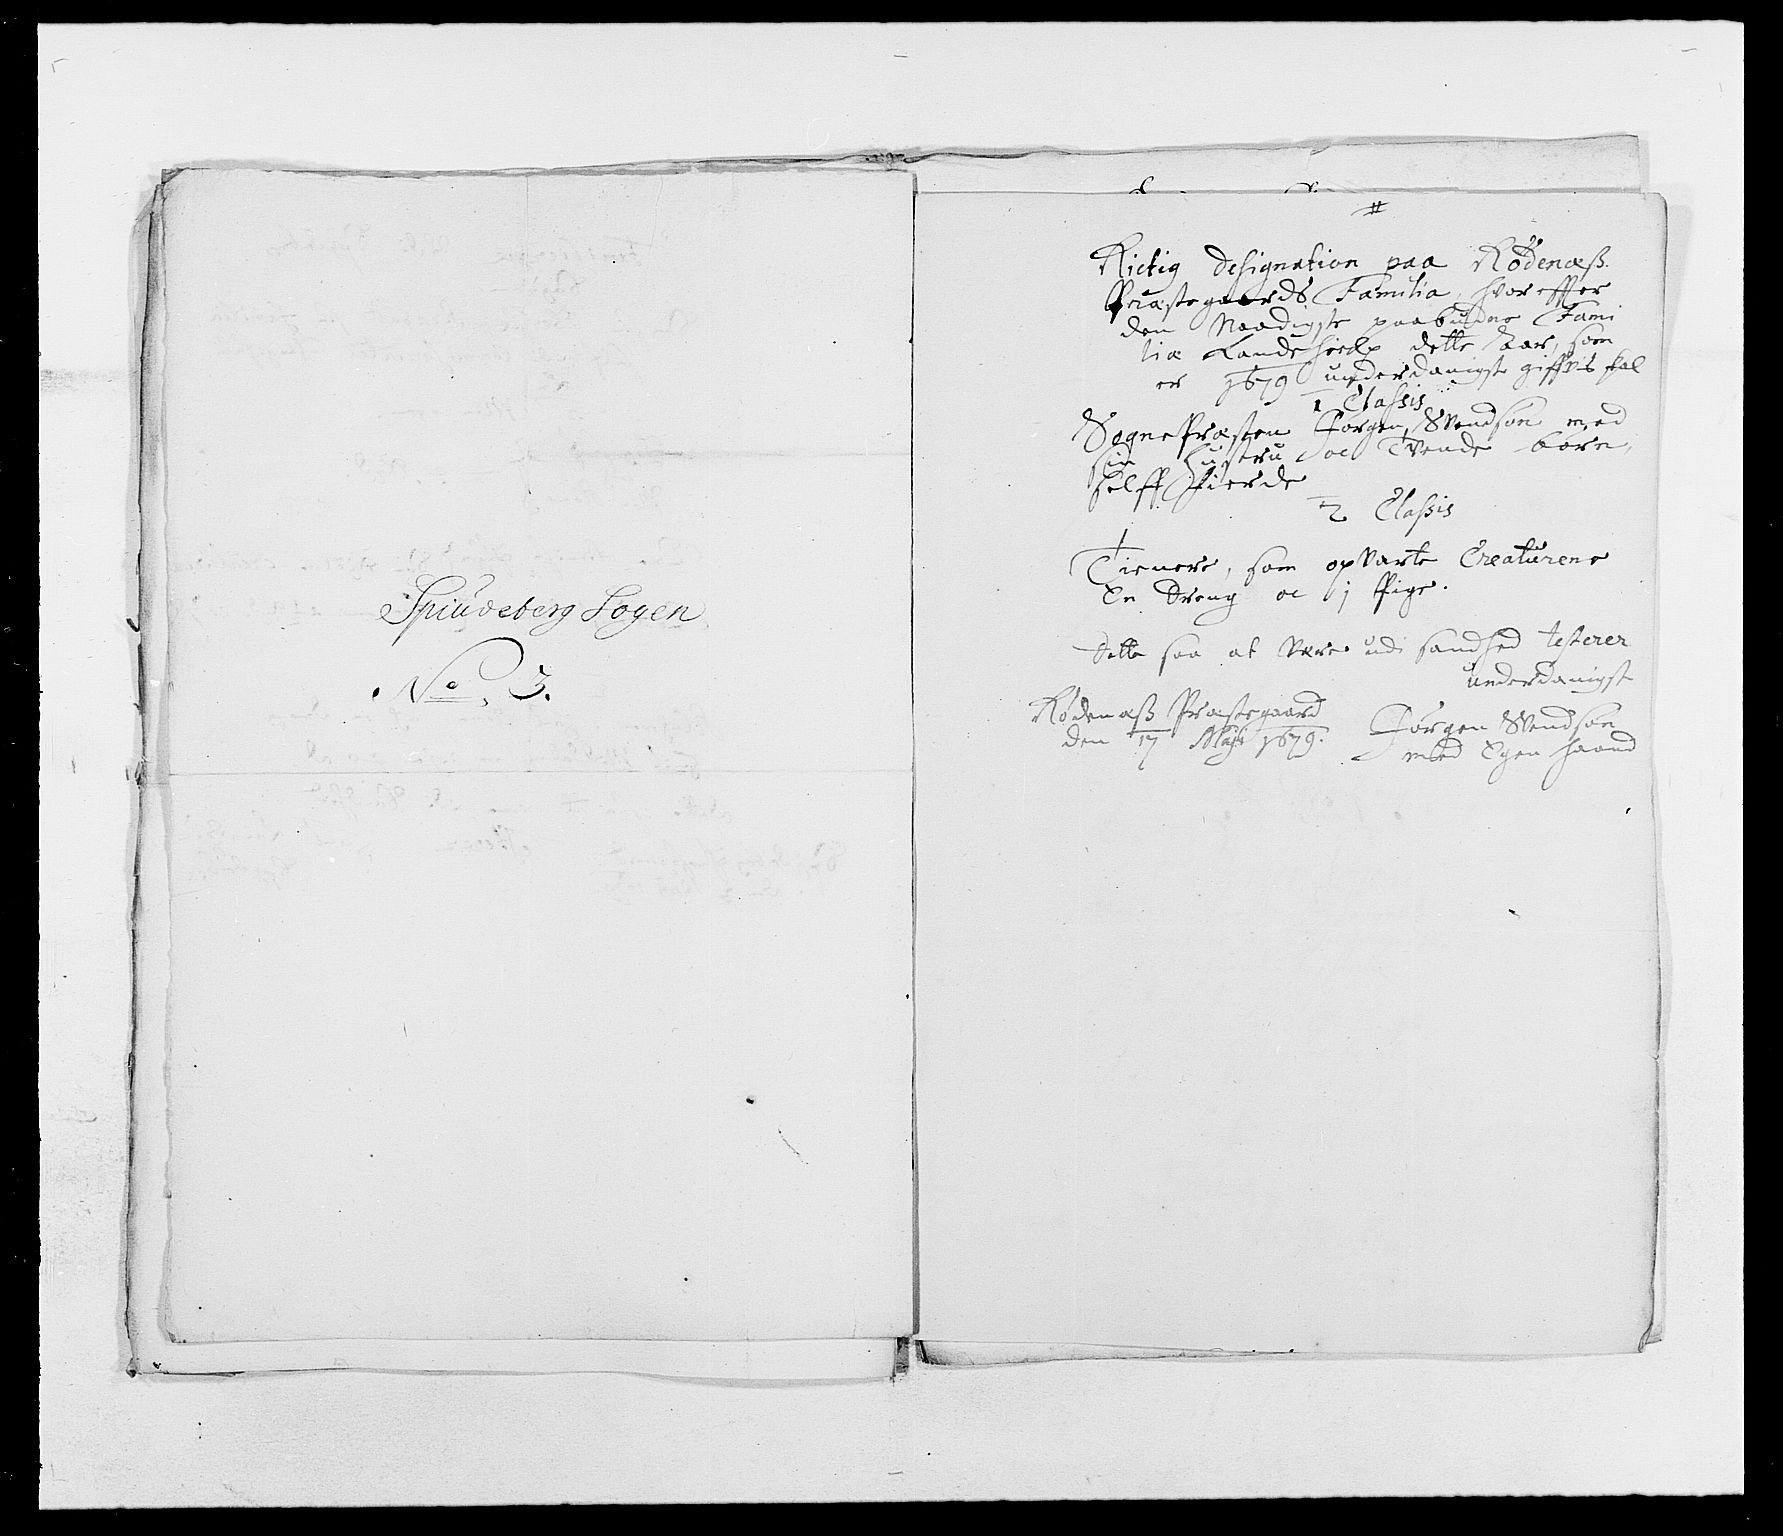 Spiudeberg Sogen
No. 3.
#
Rictig designation paa Rödenæß
Præstegaards Familia, hvor effter
den Naadigste paabudne Fami
liæ Lande hielp dette Aar, som
er 1679 underdanigst giffvis skal
1 Classis
SognePræsten Jörgen Svendsøn med
sin Hustru oc Tvende børn,
selff Fierde
2 Classis
Tienere, som opvarte Creaturene
En dreng oc j Pige.
Dette saa at være udi sandhed testerer
underdanigst
Rödenæß Præstegaard
den 17 Maji 1679.
Jörgen Svendsøn
med Egen haand